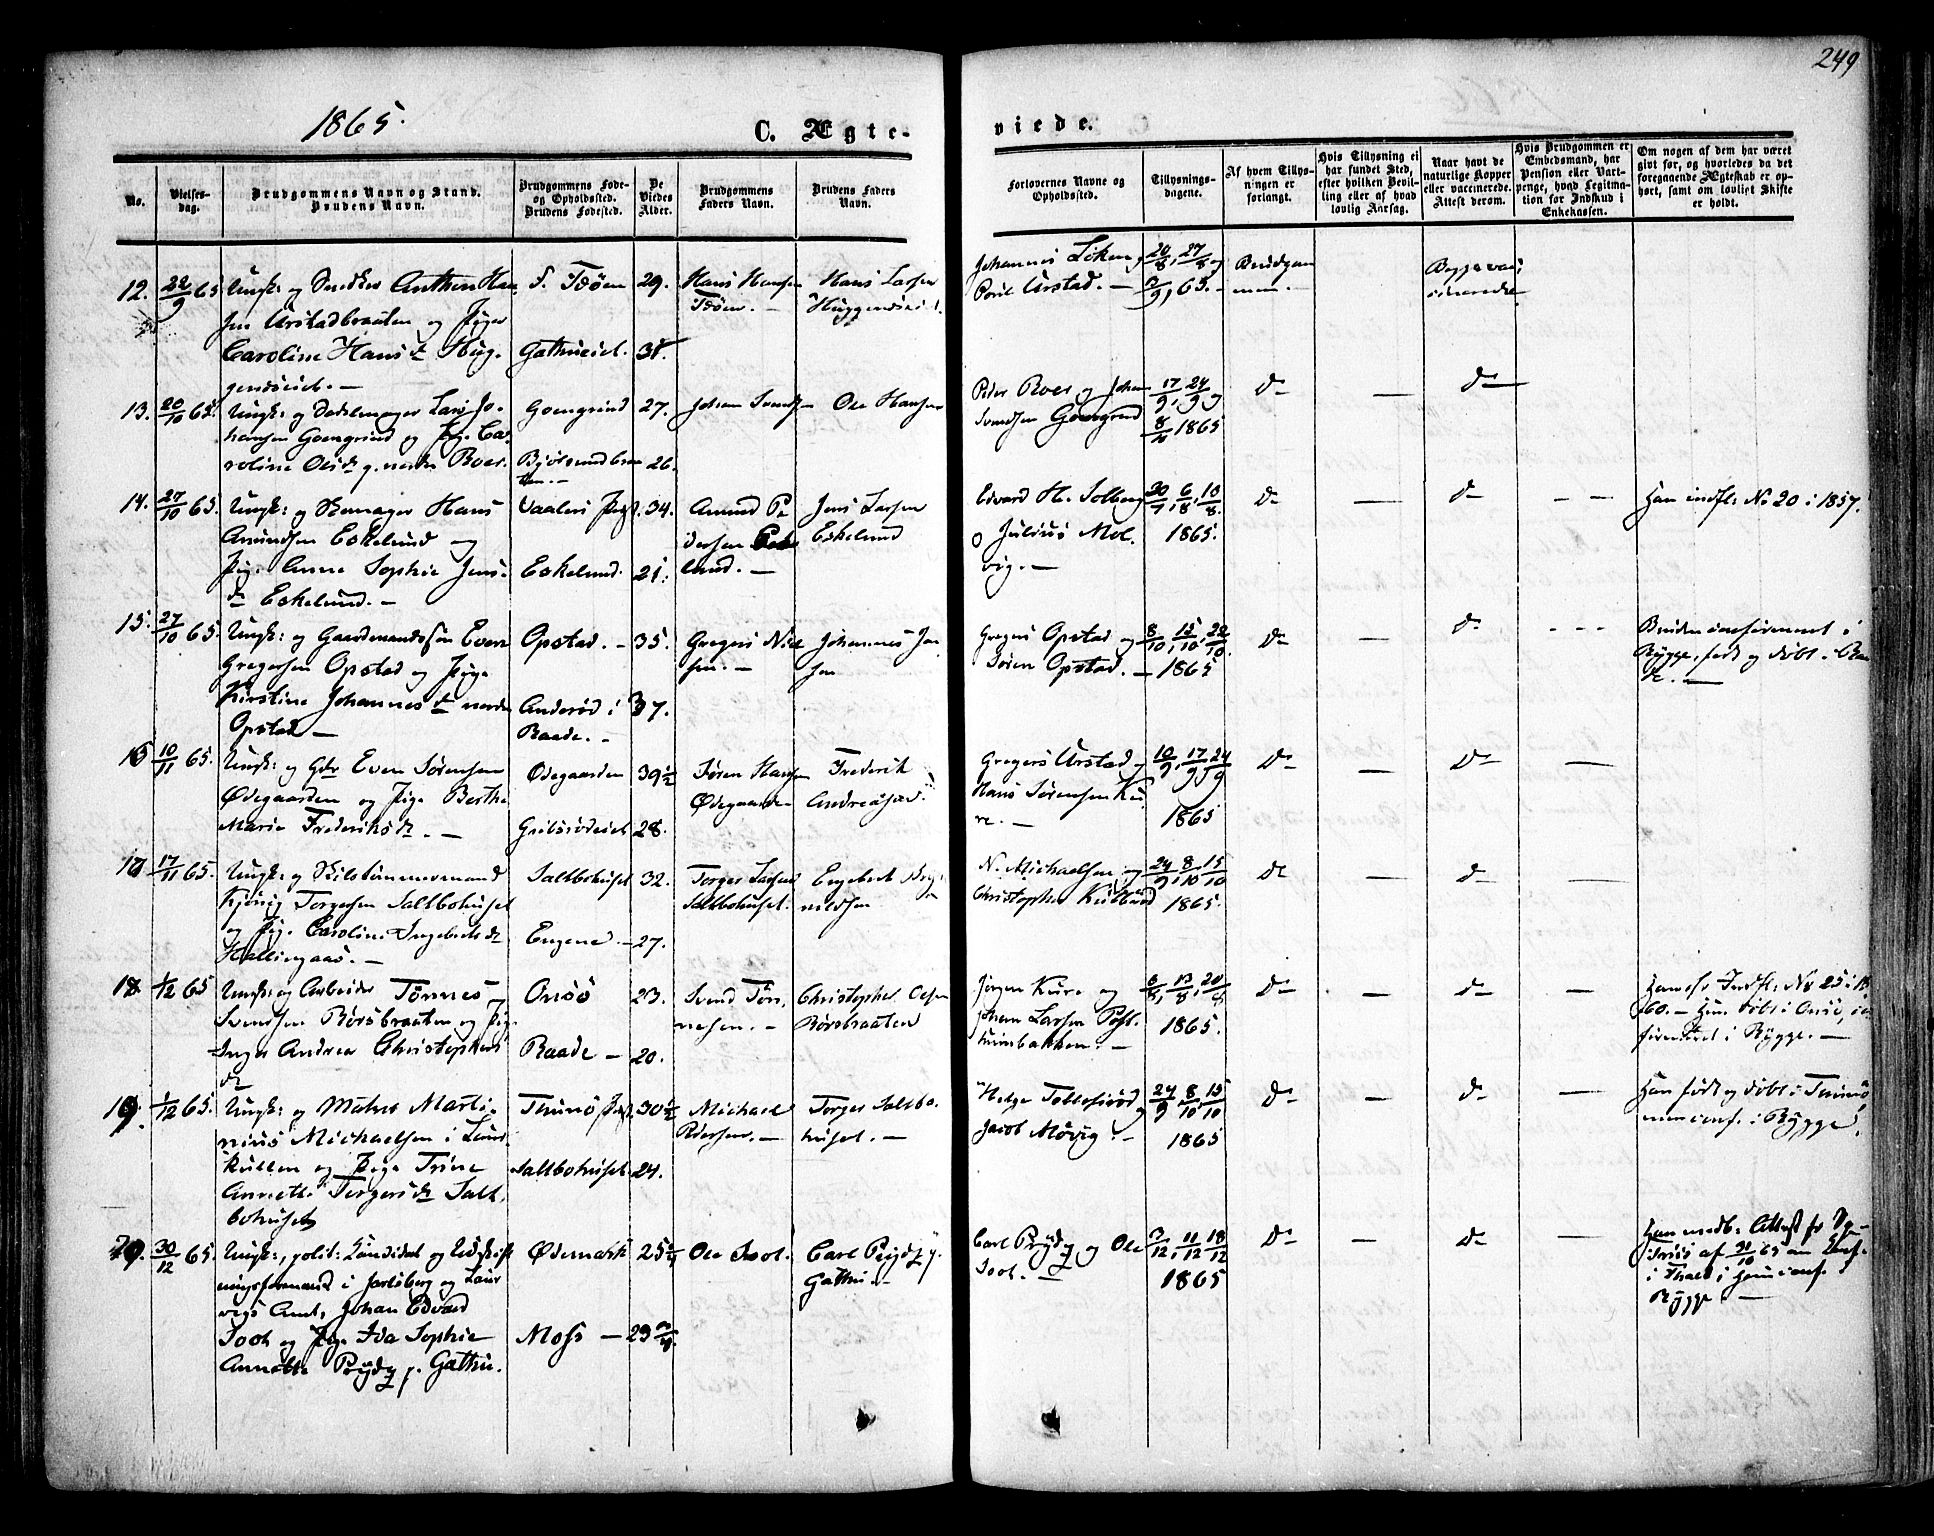 249
1865.
C. Ægte-
viede.
No.
Vielses-
dag.
Brudgommens Navn og Stand.
Brudens Navn.
Brudgommens Føde-
og Opholdssted.
Brudens Fødested.
De
Viedes
Alder.
Brudgommens
Faders Navn.
Brudens Faders
Navn.
Forlovernes Navne og
Opholdssted.
Tillysnings-
dagene.
Af hvem Tillys-
ningen er
forlangt.
Hvis Tillysning ei
har fundet Sted,
efter hvilken Bevil-
ling eller af hvad
lovlig Aarsag.
Naar havt de
naturlige Kopper
eller vaccinerede.
Attest derom.
Hvis Brudgommen er
Embedsmand, har
Pension eller Vart-
penge, hvad Legitima-
tion for Indskud i
Enkekassen.
Om nogen af dem har været
givt før, og hvorledes da det
foregaaende Ægteskab er op-
hørt, samt om lovligt Skifte
er holdt.
12. 22/9 65 Ungk: og Snedker Anthon Han
sen Urstadbraaten og Pige
Caroline Hansdr Hug-
gendseiet. —
29.
Gathueiet. 31.
Hans Hansen
Hans Larsen
Huggendseiet.
Johannes Löken og
Poul Urstad. —
20/8, 27/8 og
3/9, 65. —
Brudgom
men. —
Begge vac
cinerede
13. 20/10 65. Ungk: og Lars Jo-
hansen Goengrind og Pige Ca-
roline Olsdr Roer.
Goengrind 27.
26.
Johan Svends. — Ole Hansen
Peder Roer og Johan
Svendsen Goengrind
17/9, 24/9 og
8/10 1865
do — do
14. 27/10 65. Ungk: og Hans
Amundsen Eskelund og
Pige Anne Sophie Jens-
dr Eskelund. —
Vaalers Pigd. 34.
Eskelund. 21.
Amund Pe
dersen Eske
lund. —
Jens Larsen
Eskelund
Edvard H. Solberg
o Julius Mol.
vig. —
30/7, 6/8, 13/8.
1865.
do — do — —
Han indfl: No 20 i 1857.
15. 27/10 65. Ungk: og Gaardmandssøn Even
Gregersen Opstad og Pige
Kirstine Johannesdr
Opstad —
Opstad. — 35.
Anderød i 37.
Raade. —
Gregers Niel
sen. —
Johannes Jen
sen
Gregers Opstad og
Søren Opstad. —
8/10, 15/10, 22/10.
1865
do — do - - -
Bruden confirmeret i
Rygge, født og døbt i Raa
de. —
16 10/11 65. Ungk: og Gdr Even Sørensen
Ødegaarden og Pige Berthe
Marie Frederiksdr. —
Ødegaarden 39 1/2
Gribsrødeiet 28.
Søren Hansen
Ødegaarden
Frederik
Andreasen.
Gregers Urstad og
Hans Sørensen Ku
re. —
10/9, 17/9, 24/9
1865
do — do —
17 17/11 65. Ungk: og
Torgersen Saltbohuset
og Pige Caroline Ingebretsdr
Hallingaas. —
Saltbohuset 32.
Engene. — 27.
Torger Larsen
Saltbohuset.
N. Michaelsen og
Christopher
24/9, 8/10, 15/10
1865.
do — do —
18. 1/12 65 Ungk: og Arbeider Tönnes
Svendsen Rörsbraaten og Pige
Inger Andrea Christophers
dr
Onsö 23.
Raade — 20.
Svend Tön-
nesen. —
Christopher Olsen
Rörsbraaten
Jørgen Kure og
Johan Larsen
6/8, 13/8, 20/8
1865.
do — do —
Han er Indfl: No 25 i 18
60. — Hun döbt i Onsö, con
firmeret i Rygge. —
19. 1/12 65. Ungk: og Matros Marti-
nius Michaelsen i Laur
kullen og Pige Trine
Annette Torgersdr Salt-
bohuset
Thunö Pgd. 30 1/2
Saltbohuset 24.
Michael
Pedersen. —
Torger Saltbo-
huset. —
Helge Tollefsröd
Jacob Mövig. —
24/9, 8/10, 15/10
1865
do — do —
Han født og döbt i Thunö
men conf. i Rygge.
20. 30/12 65. Ungk:, polit: Candidat og Udskift
ningsformand i Jarlsberg og Laur
vigs Amt, Johan Edvard
Soot og Pige Ida Sophie
Annette Prydz p. Gathu.
Ødemark 25 1/4
Moss — 23 3/4
Ole Soot.
Carl Prydz
Gathu. —
Carl Prydz og Ole
Soot. —
3/12, 11/12, 18/12
1865
do — do —
Han medb: Attest fr
af 31/10 65 om Conf.
i Hun conf. i
Rygge —